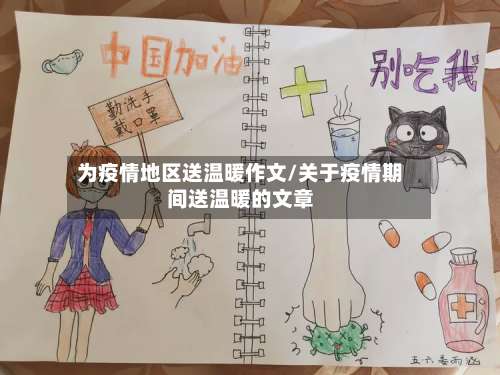 中国加油
别吃我
勤洗手
戴口罩
为疫情地区送温暖作文/关于疫情期
间送温暖的文章